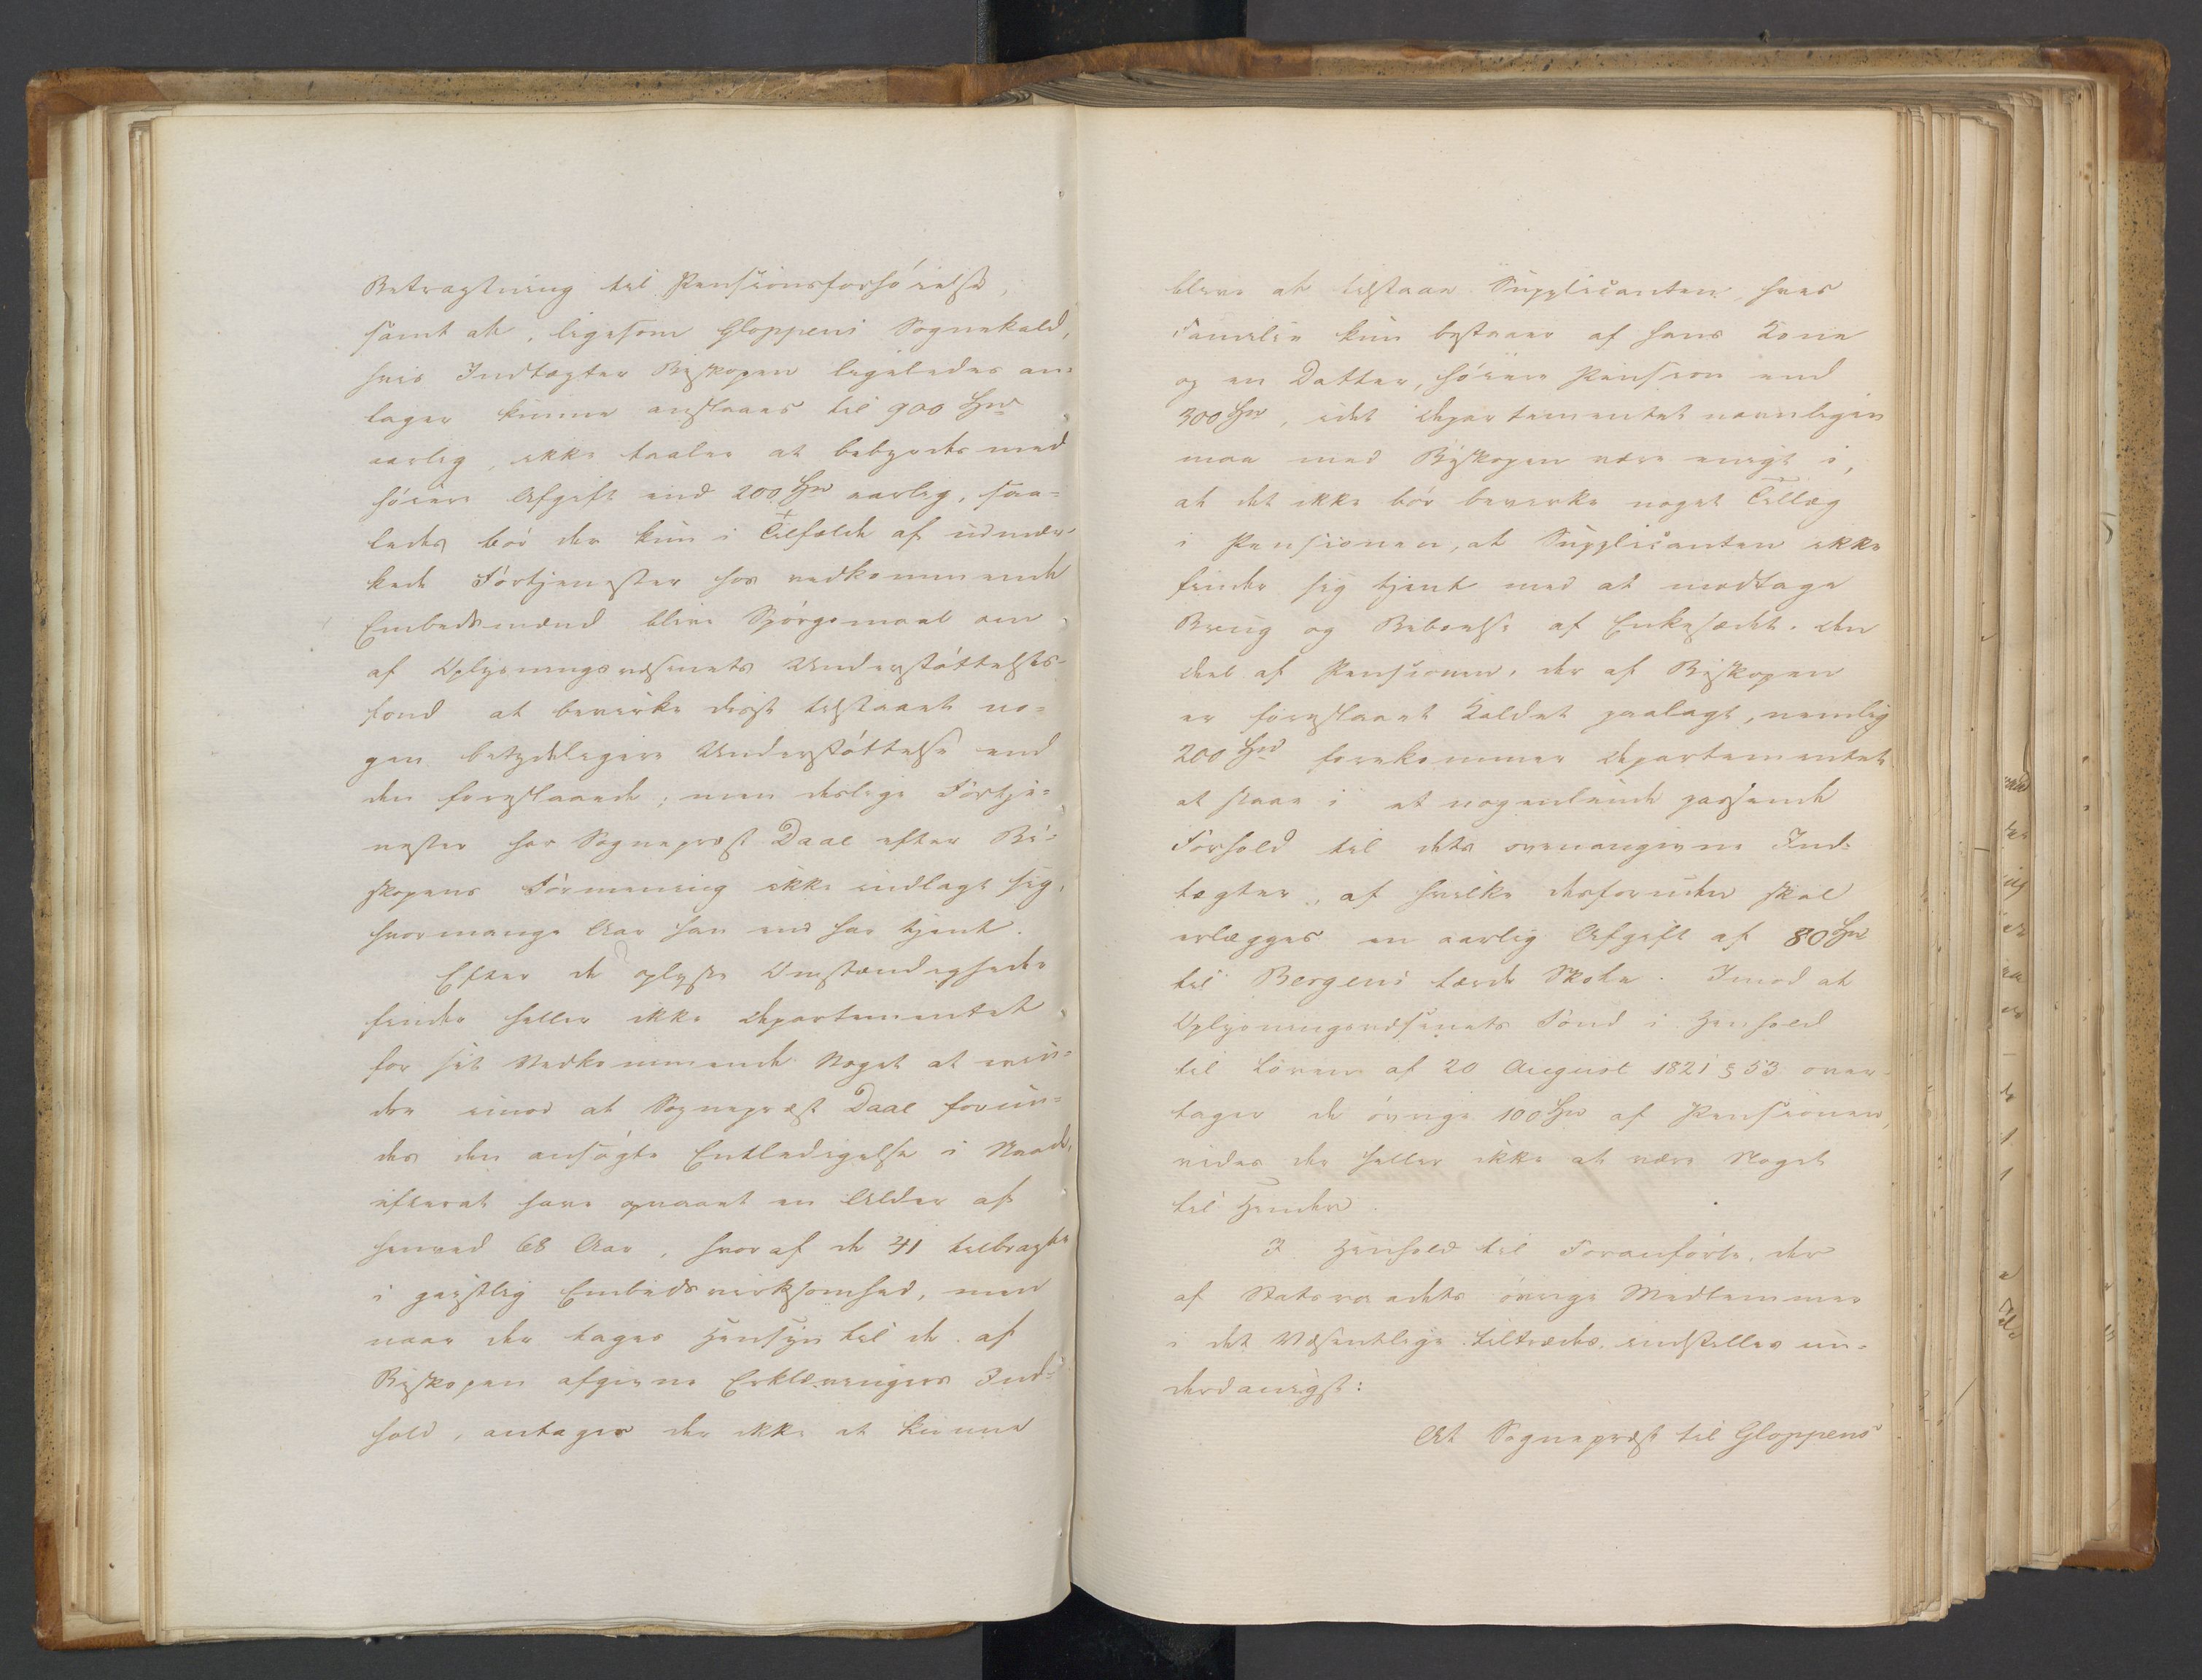 Betragtning til Pensionsforhöielse,
samt at, ligesom Gloppens Sognekald,
hvis Indtægter Biskopen ligeledes an-
tager kunne anslaaes til 900 Spd
aarlig, ikke taaler at bebyrdes med
höiere Afgift end 200 Spd aarlig, saa-
ledes bör der kun i Tilfælde af udmær-
kede Fortjenester hos vedkommende
Embedsmænd blive Spörgsmaal om
af Oplysningsvæsenets Understöttelses-
fond at bevirke disse tilstaaet no-
gen betydeligere Understöttelse end
den foreslaaede; men deslige Fortje-
nester har Sognepræst Daae efter Bi-
skopens Formening ikke indlagt sig,
hvormange Aar han end har tjent.
Efter de oplyste Omstændigheder
finder heller ikke Departementet
for sit Vedkommende Noget at erin-
dre imod at Sognepræst Daae forun-
des den ansögte Entledigelse i Naade,
efterat have opnaaet en Alder af
henved 68 Aar, hvoraf de 41 tilbragte
i geistlig Embedsvirksomhed, men
naar der tages Hensyn til de af
Biskopen afgivne Erklæringers Ind-
hold, antages der ikke at kunne
blive at tilstaae Supplicanten, hvis
Familie kun bestaaer af hans Kone
og en Datter, höiere Pension end
300 Spd, idet Departementet nemligen
maa med Biskopen være enigt i,
at det ikke bör bevirke noget Tillæg
i Pensionen, at Supplicanten ikke
finder sig tjent med at modtage
Brug og Beboelse af Enkesædet. Den
Deel af Pensionen, der af Biskopen
er foreslaaet Kaldet paalagt, nemlig
200 Spd forekommer Departementet
at staae i et nogenlunde passende
Forhold til dets ovenangivne Ind-
tægter, af hvilke desforuden skal
erlægges en aarlig Afgift af 80 Spd
til Bergens lærde Skole. Imod at
Oplysningsvæsenets Fond i Henhold
til Loven af 20 August 1821 § 53 over-
tager de övrige 100 Spd af Pensionen,
vides der heller ikke at være Noget
til Hinder.
I Henhold til Foranförte, der
af Statsraadets övrige Medlemmer
i det Væsentlige tiltrædes, indstilles un-
derdanigst:
At Sognepræst til Gloppens